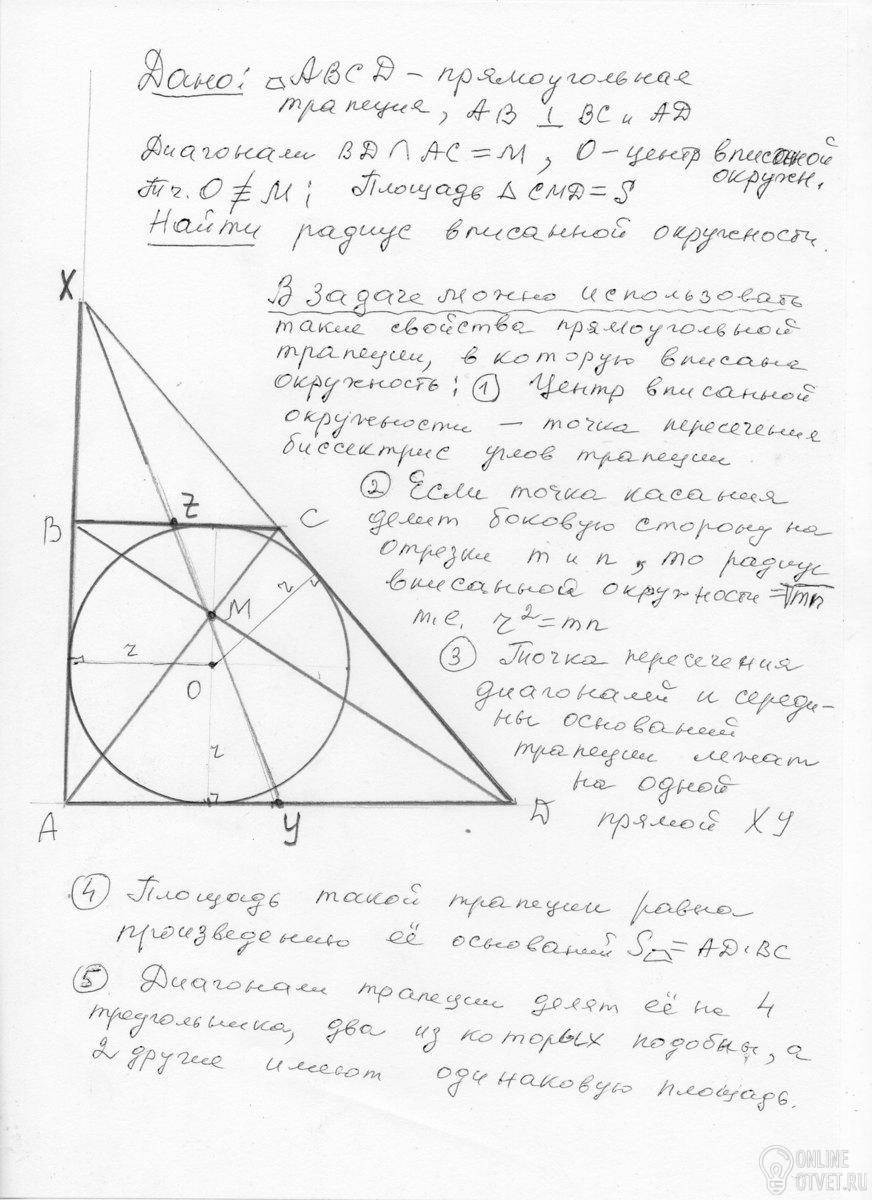 Дано: ▱ABCD – прямоугольная
трапеция, AB ⊥ BC и AD
Диагонали BD ∩ AC = M, O – центр вписанной
окружн.
Т.ч. O ≢ M; Площадь △ CMD = S
Найти радиус вписанной окружности.
X
В задаче можно использовать
такие свойства прямоугольной
трапеции, в которую вписана
окружность: ① Центр вписанной
окружности – точка пересечения
биссектрис углов трапеции
② Если точка касания
B Z C
делит боковую сторону на
отрезки m и n, то радиус
вписанной окружности = √mn
т.е. r² = mn
M
r
r
O
③ Точка пересечения
диагоналей и середи-
ны оснований
трапеции лежат
на одной
прямой XY
r
A Y D
④ Площадь такой трапеции равна
произведению её оснований S▱ = AD·BC
⑤ Диагонали трапеции делят её на 4
треугольника, два из которых подобны, а
2 другие имеют одинаковую площадь.
ONLINE
OTVET.RU